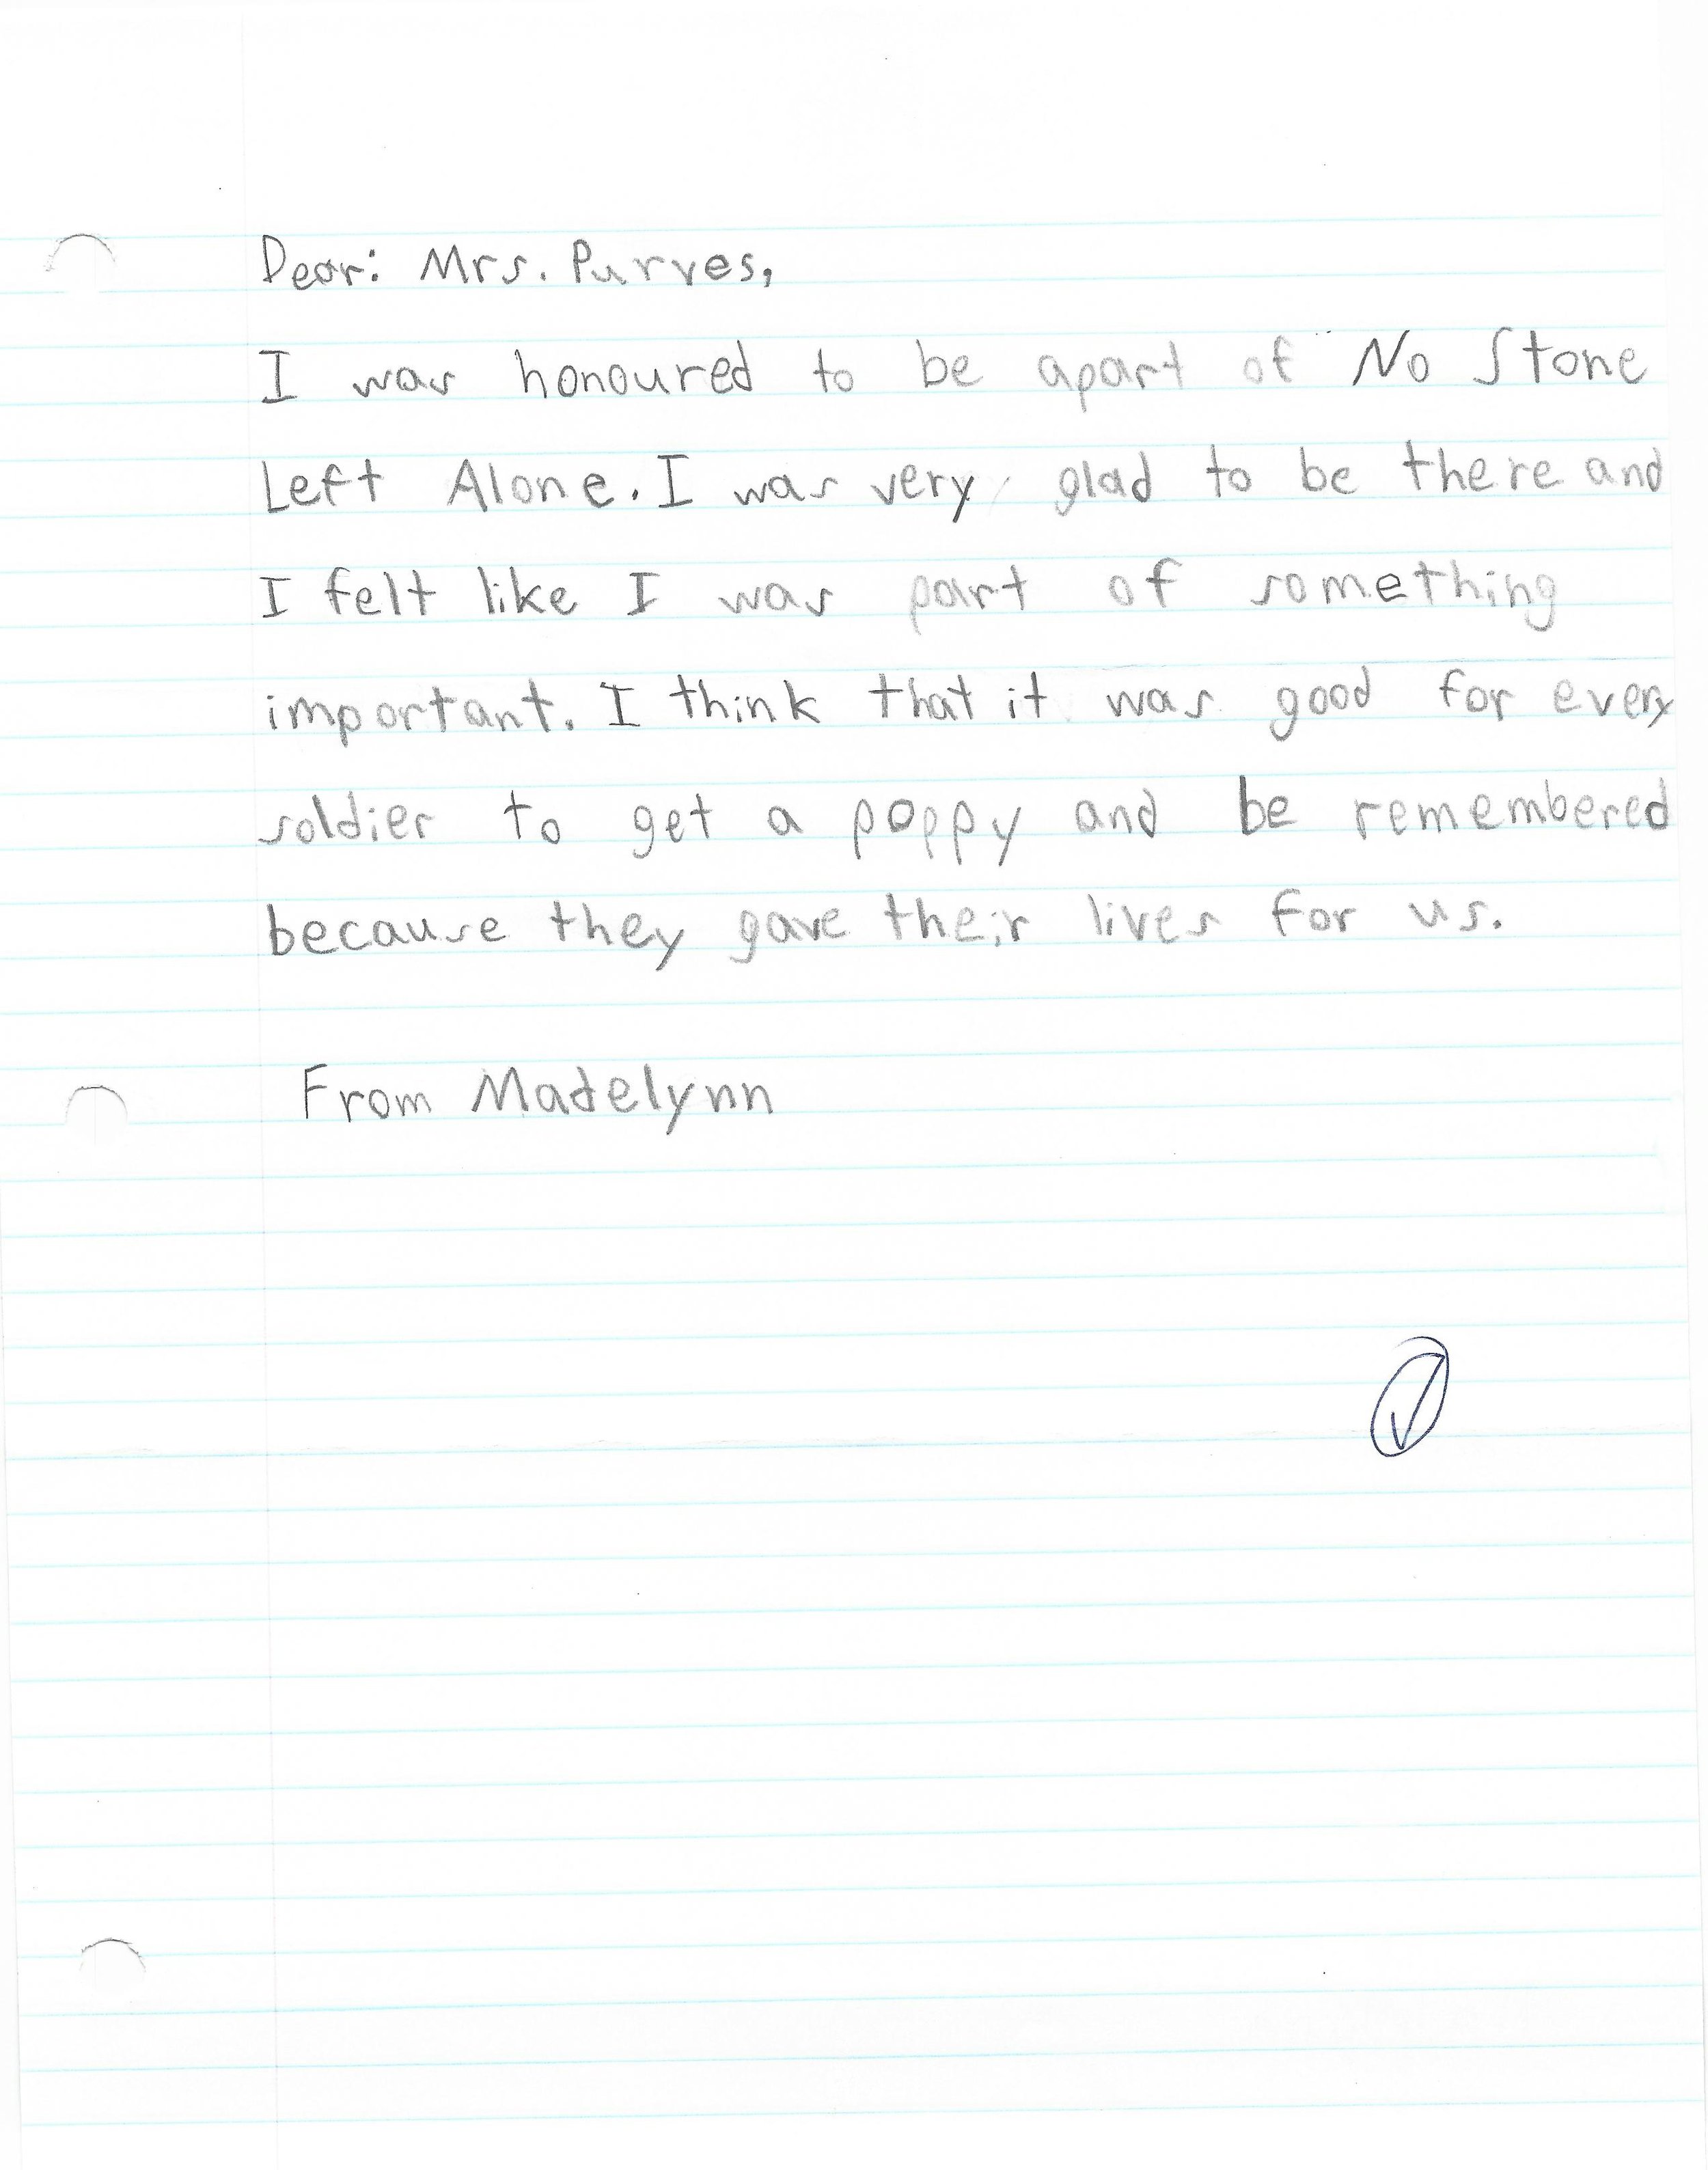 Dear: Mrs. Purves,
I was honoured to be apart of No Stone
Left Alone. I was very glad to be there and
I felt like I was part of something
important. I think that it was good for every
soldier to get a poppy and be remembered
because they gave their lives for us.
From Madelynn